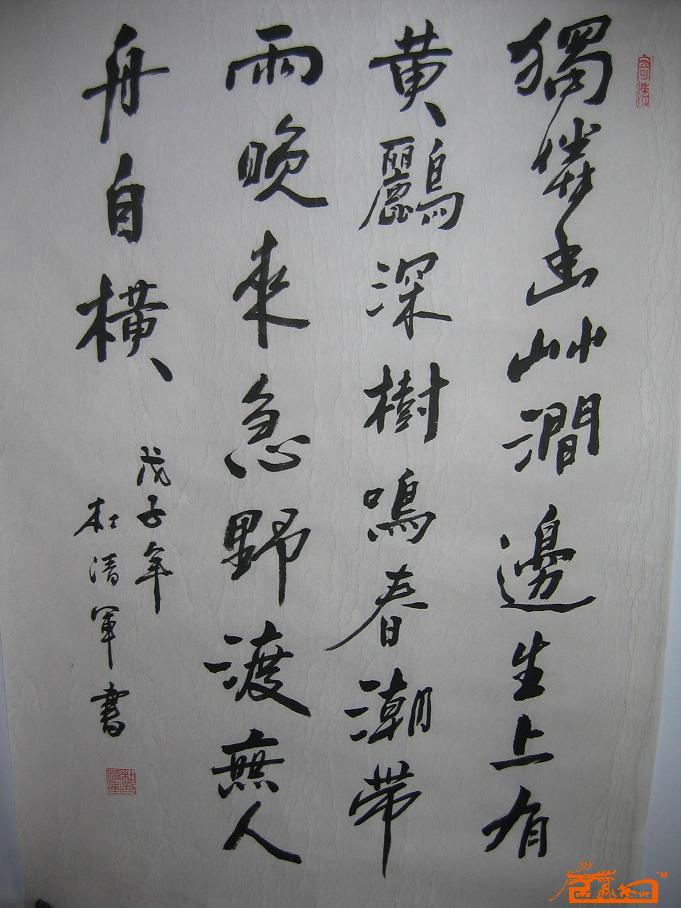 獨憐幽艸澗邊生上有
黄鸝深樹鳴春潮带
雨晚来急野渡無人
舟自横
戊子年
杜清軍書